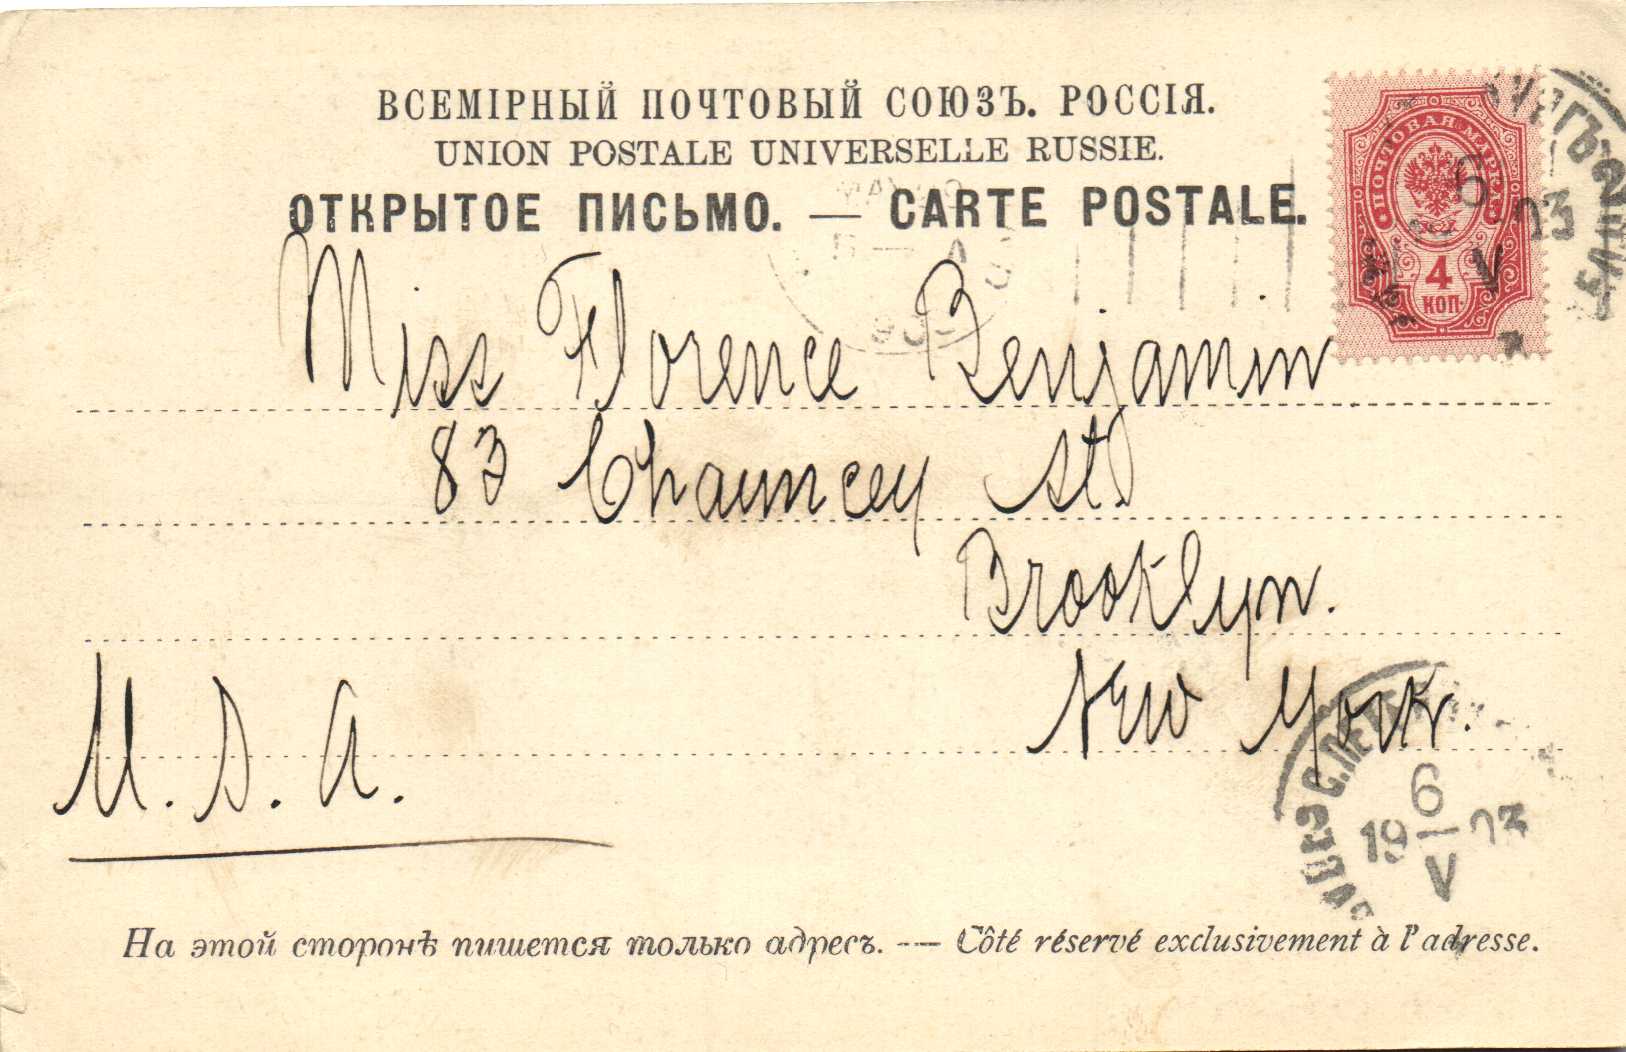 ВСЕМІРНЫЙ ПОЧТОВЫЙ СОЮЗЪ. РОССІЯ.
UNION POSTALE UNIVERSELLE RUSSIE.
ОТКРЫТОЕ ПИСЬМО. — CARTE POSTALE.
ПОЧТОВАЯ МАРКА
4
КОП.
Miss Florence Benjamin
83 Chauncey St.
Brooklyn.
New York.
U. S. A.
6
19 03
V
На этой сторонѣ пишется только адресъ. — Côté réservé exclusivement à l'adresse.